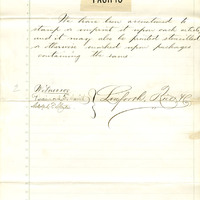 PACIFIC
We have been accustomed to
stamp or imprint it upon each article
and it may also be printed stencilled
or otherwise marked upon packages
containing the same
Witnesses